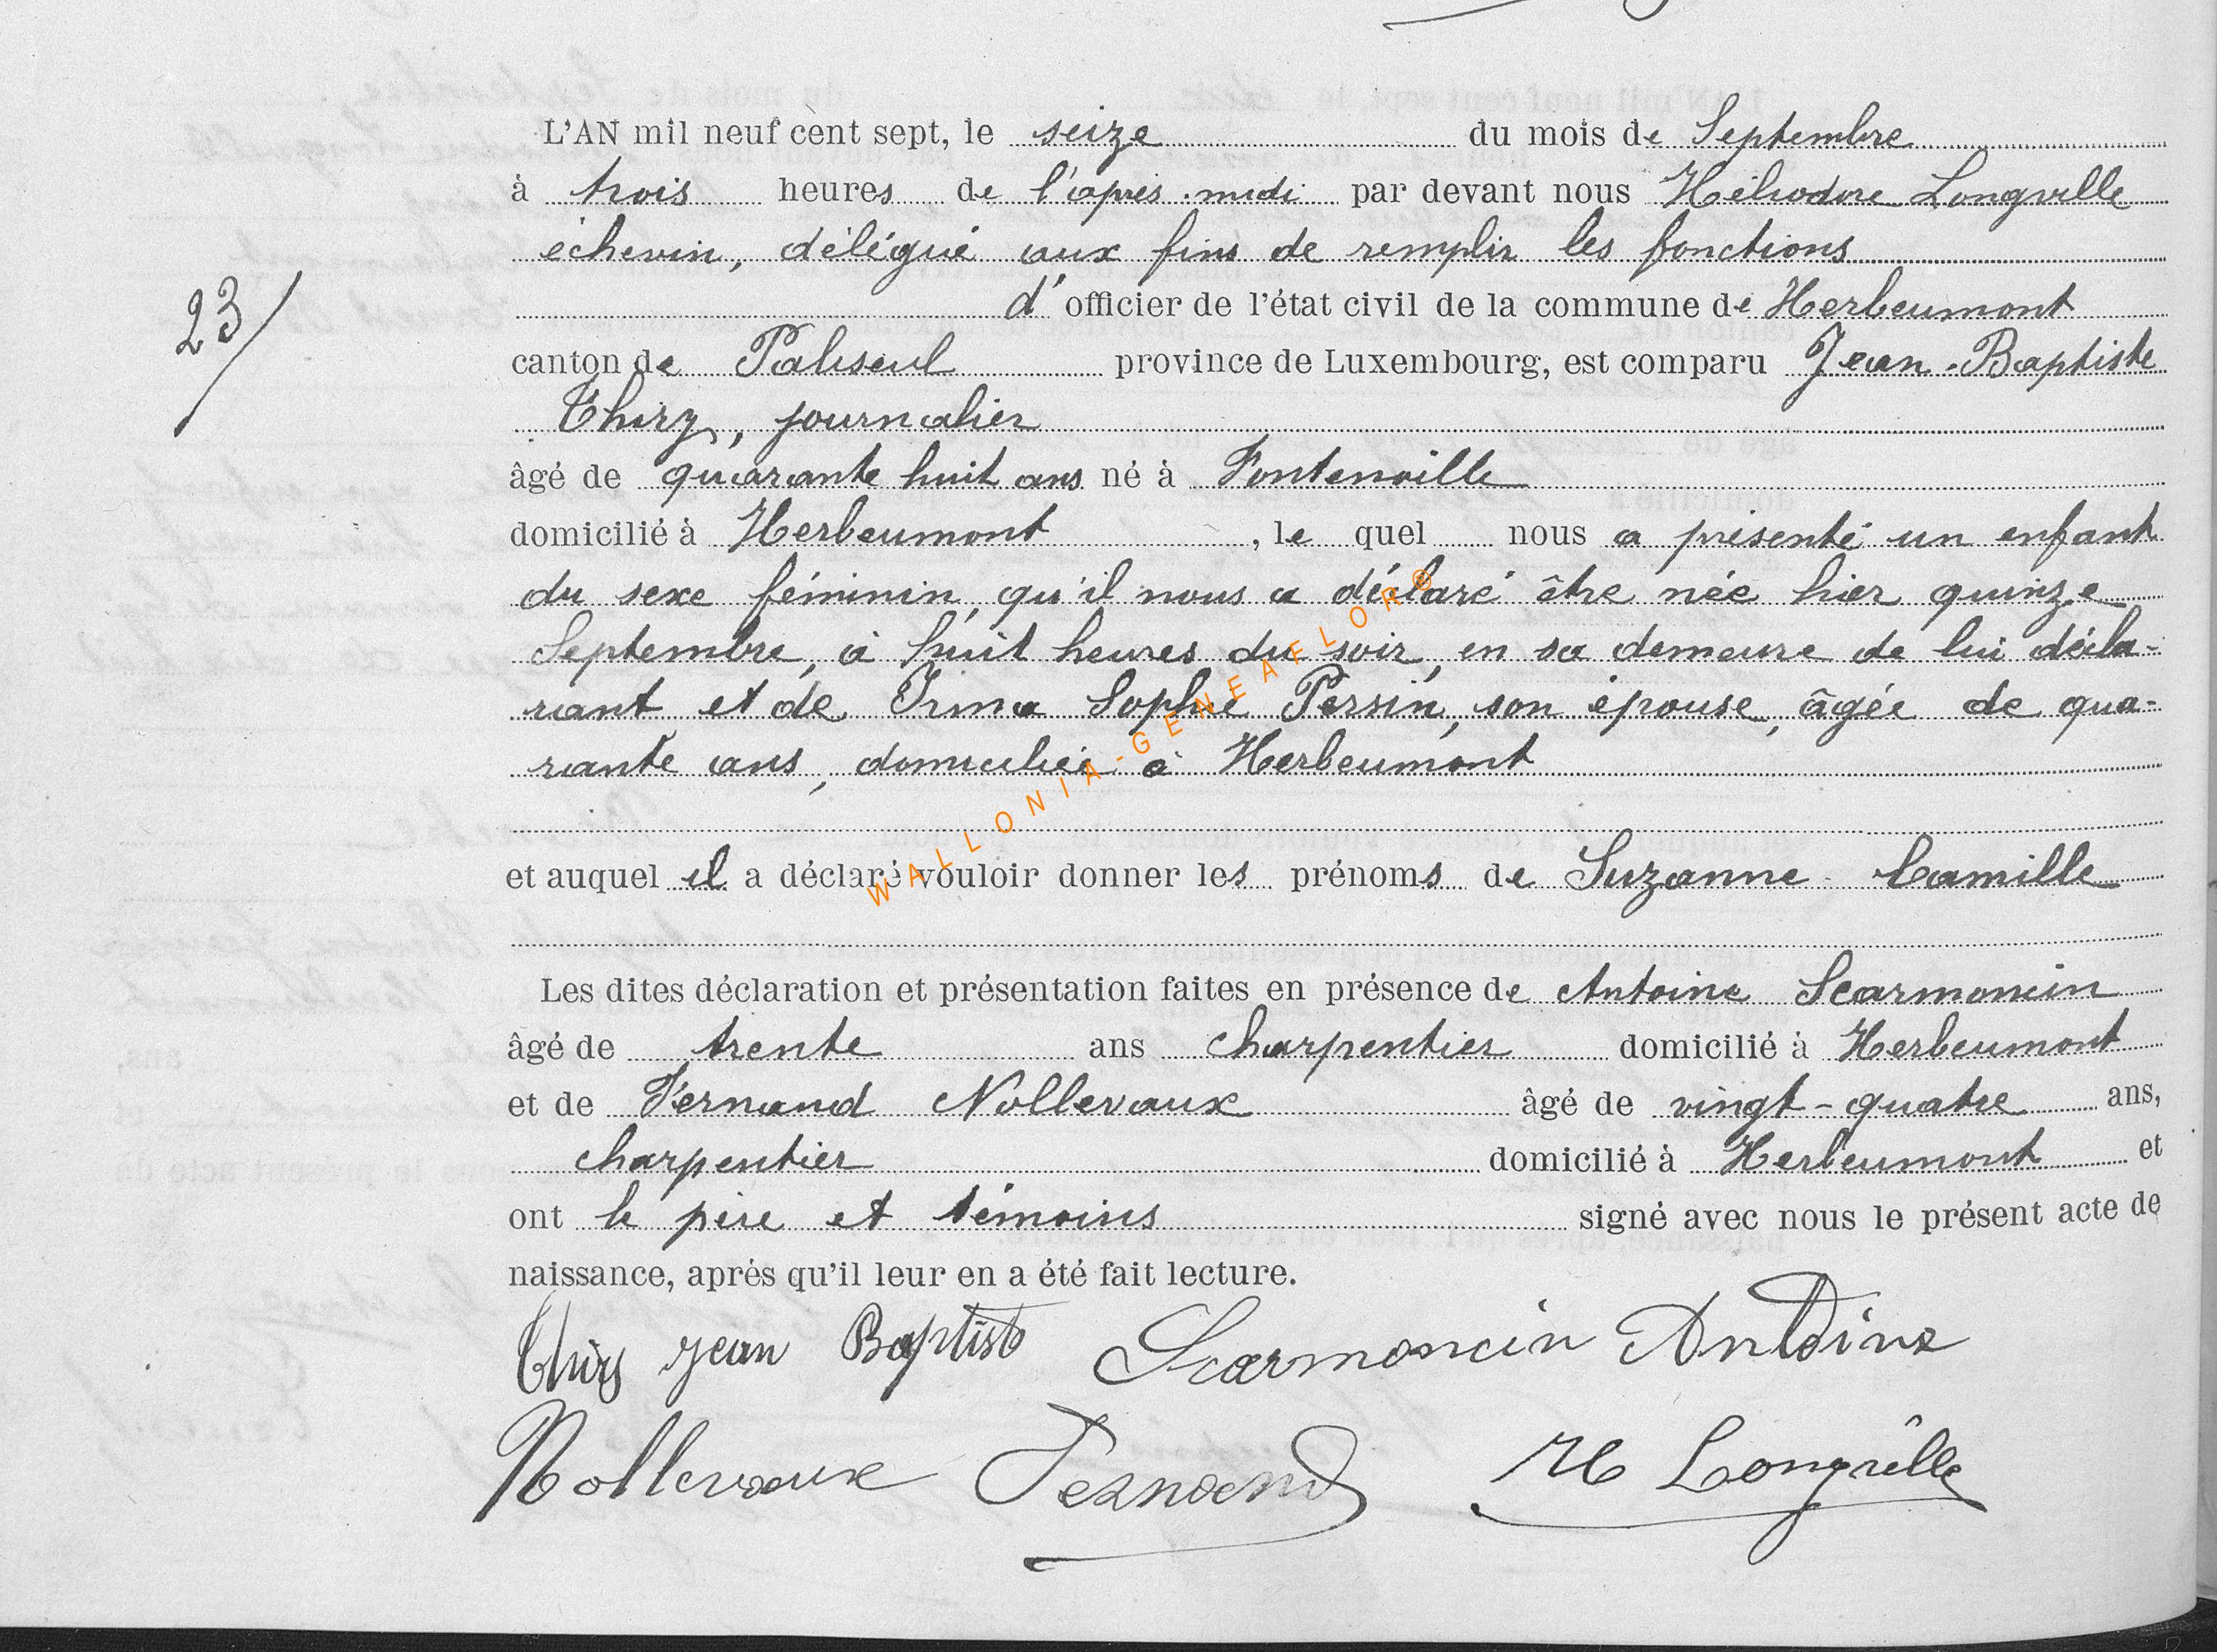 L'AN mil neuf cent sept, le seize du mois de Septembre
à trois heures de l'après-midi par devant nous Héliodore Longville
échevin, délégué aux fins de remplir les fonctions
d'officier de l'état civil de la commune de Herbeumont
23/
canton de Paliseul province de Luxembourg, est comparu Jean-Baptiste
Thiry, journalier
âgé de quarante huit ans né à Fontenoille
domicilié à Herbeumont, le quel nous a présenté un enfant
du sexe féminin, qu'il nous a déclaré être née hier quinze
Septembre, à huit heures du soir, en sa demeure de lui décla-
rant et de Irma Sophie Persin, son épouse, âgée de qua-
rante ans, domiciliée à Herbeumont
WALLONIA-GENEAFLOR®
et auquel il a déclaré vouloir donner les prénoms de Suzanne Camille
Les dites déclaration et présentation faites en présence de Antoine Scarmoncin
âgé de trente ans charpentier domicilié à Herbeumont
et de Fernand Nollevaux âgé de vingt-quatre ans,
charpentier domicilié à Herbeumont et
ont le père et témoins signé avec nous le présent acte de
naissance, après qu'il leur en a été fait lecture.
Thiry Jean Baptiste Scarmoncin Antoine
Nollevaux Fernand H Longville